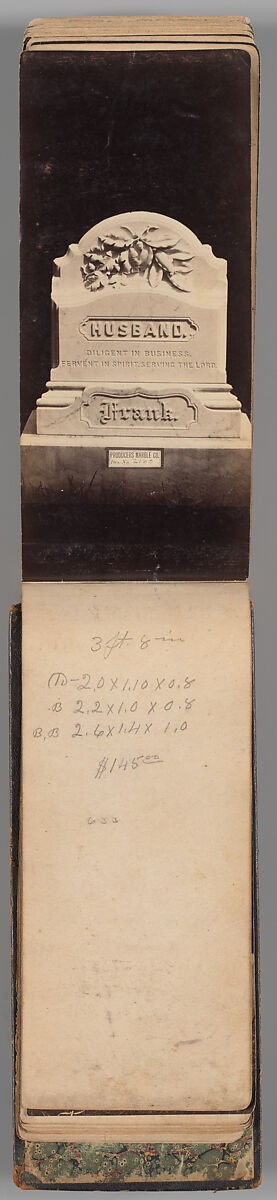 HUSBAND.
DILIGENT IN BUSINESS,
FERVENT IN SPIRIT, SERVING THE LORD.
Frank.
PRODUCERS MARBLE CO.
3 ft. 8 in
D - 2.0 x 1.10 x 0.8
B 2.2 x 1.0 x 0.8
B,B 2.6 x 1.4 x 1.0
$145.00
633